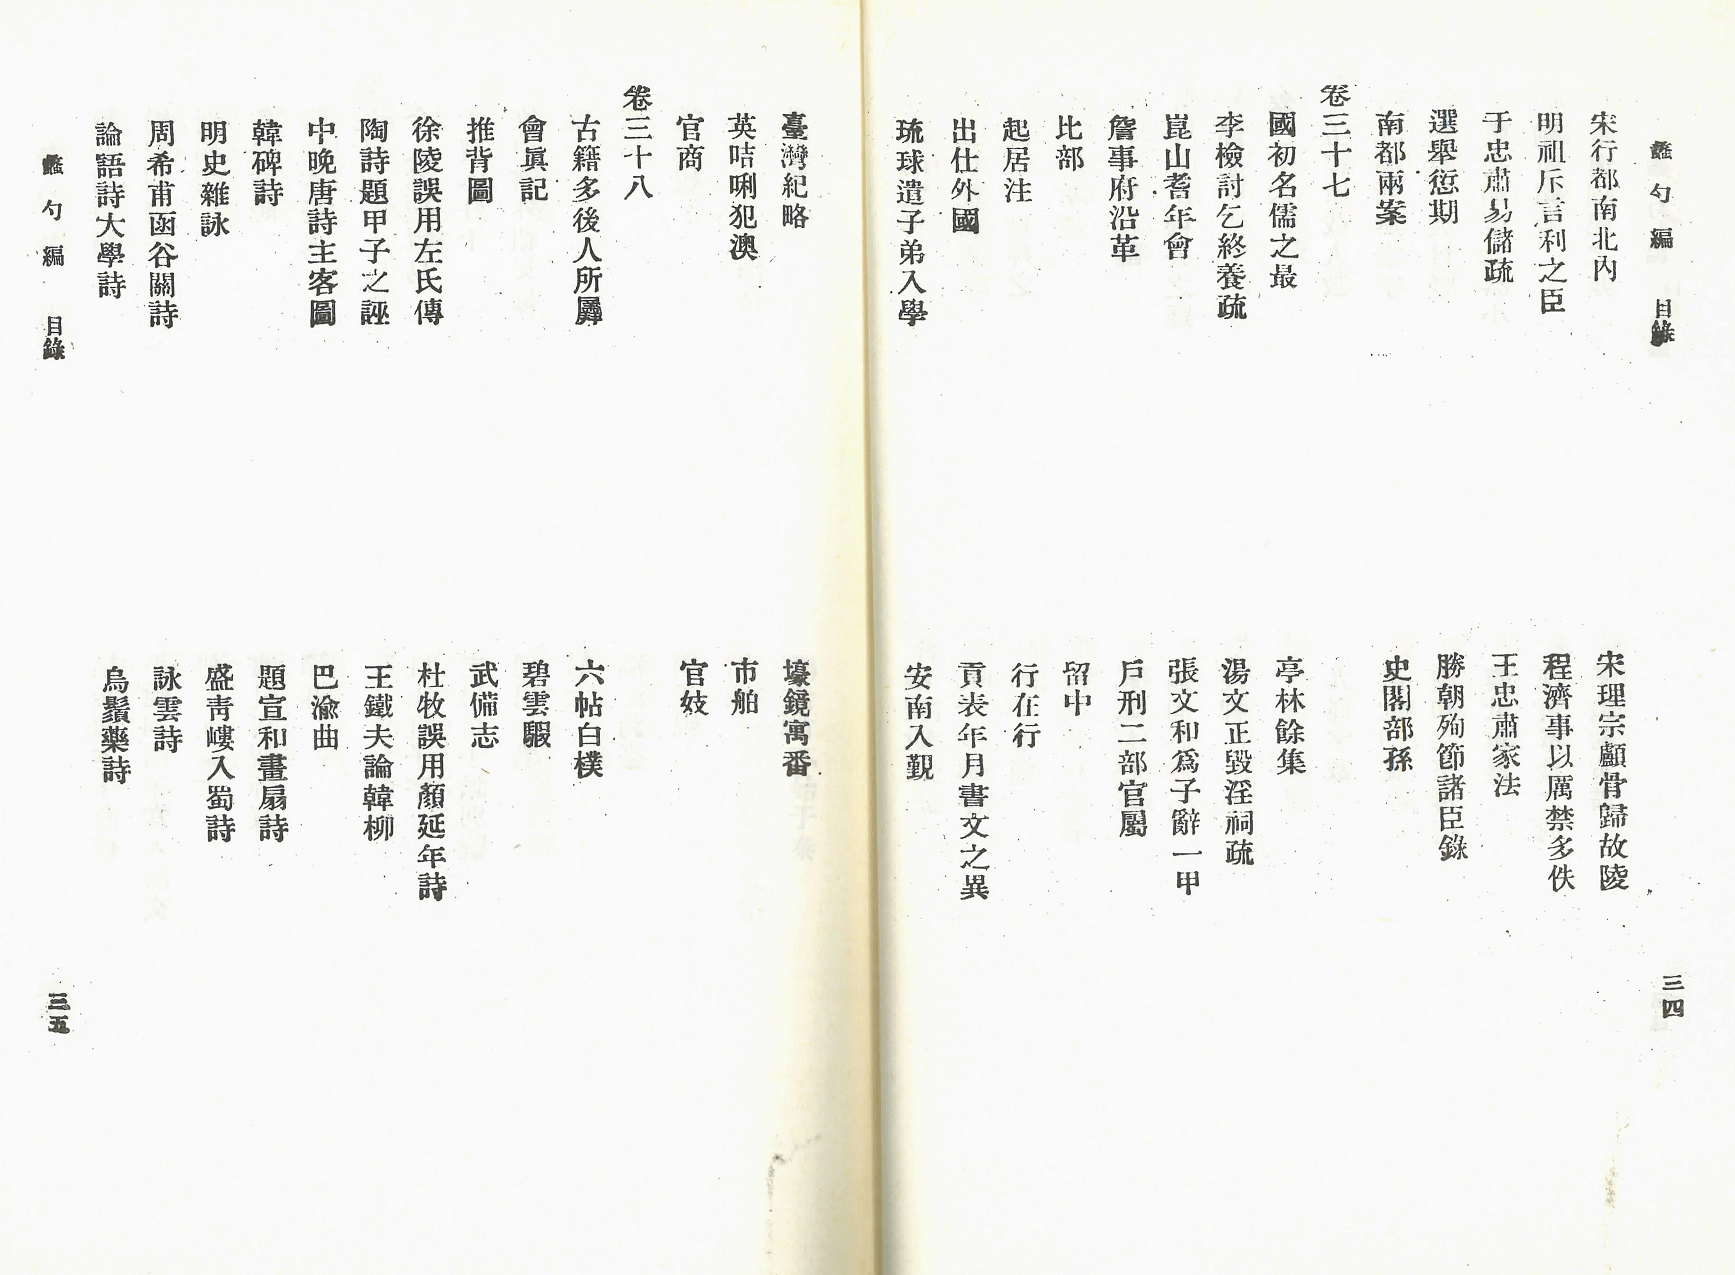 蠡勺編 目錄 三四
宋行都南北內 宋理宗顱骨歸故陵
明祖斥言利之臣 程濟事以厲禁多佚
于忠肅易儲疏 王忠肅家法
選舉愆期 勝朝殉節諸臣錄
南都兩案 史閣部孫
卷三十七
國初名儒之最 亭林餘集
李檢討乞終養疏 湯文正毀淫祠疏
崑山耆年會 張文和爲子辭一甲
詹事府沿革 戶刑二部官屬
比部 留中
起居注 行在行
出仕外國 貢表年月書文之異
琉球遣子弟入學 安南入覲
臺灣紀略 壕鏡寓番
英咭唎犯澳 市舶
官商 官妓
卷三十八
古籍多後人所羼 六帖白樸
會眞記 碧雲騢
推背圖 武備志
徐陵誤用左氏傳 杜牧誤用顏延年詩
陶詩題甲子之誣 王鐵夫論韓柳
中晚唐詩主客圖 巴渝曲
韓碑詩 題宣和畫扇詩
明史雜詠 盛靑嶁入蜀詩
周希甫函谷關詩 詠雲詩
論語詩大學詩 烏鬚藥詩
蠡勺編 目錄 三五